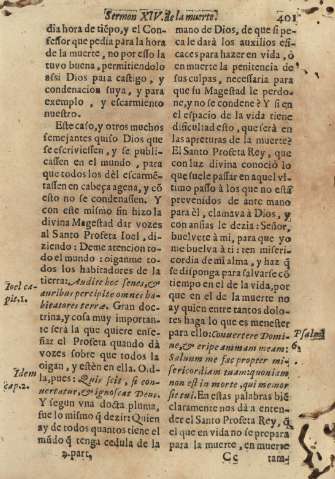 Sermon XIV. de la muerte.
401
dia hora de tiẽpo, y el Con-
fessor que pedia para la hora
de la muerte, no por esso la
tuvo buena, permitiendolo
assi Dios para castigo, y
condenacion suya, y para
exemplo, y escarmiento
nuestro.
Este caso, y otros muchos
semejantes quiso Dios que
se escriviessen, y se publi-
cassen en el mundo, para
que todos los dèl escarmẽ-
tassen en cabeça agena, y cõ
esto no se condenassen. Y
con este mismo fin hizo la
divina Magestad dar vozes
al Santo Profeta Ioel, di-
ziendo: Deme atencion to-
do el mundo: oiganme to-
dos los habitadores de la
tierra: Audite hoc senes, &
auribus percipite omnes ha-
bitatores terræ. Gran doc-
trina, y cosa muy importan-
te serà la que quiere ense-
ñar el Profeta quando dà
vozes sobre que todos la
oigan, y estèn en ella. Oid-
la, pues: Quis scit, si con-
vertatur, & ignoscat Deus.
Y segun vna docta pluma,
fue lo mismo q̃ dezir: Quien
ay de todos quantos tiene el
mũdo q̃ tenga cedula de la
2. part.
Ioel ca-
pit. 1.
Idem
cap. 2.
mano de Dios, de que si pe-
ca le darà los auxilios efi-
caces para hazer en vida, ò
en muerte la penitencia de
sus culpas, necessaria para
que su Magestad le perdo-
ne, y no se condene? Y si en
el espacio de la vida tiene
dificultad esto, que serà en
las apreturas de la muerte?
El Santo Profeta Rey, que
con luz divina conociò lo
que suele passar en aquel vl-
timo passo à los que no estã
prevenidos de ante mano
para èl, clamava à Dios, y
con ansias le dezia: Señor,
buelvete à mi, para que yo
me buelva à ti: ten miseri-
cordia de mi alma, y haz q̃
se disponga para salvarse cõ
tiempo en el de la vida, por
que en el de la muerte no
ay quien entre tantos dolo-
res haga lo que es menester
para ello: Convertere Domi-
ne, & eripe animam meam:
Salvum me fac propter mi-
sericordiam tuam: quoniam
non est in morte, qui memor
sit tui. En estas palabras biẽ
claramente nos dà a enten-
der el Santo Profeta Rey, q̃
el que en vida no se prepara
para la muerte, en muerte
Cc
tam-
Psalm.